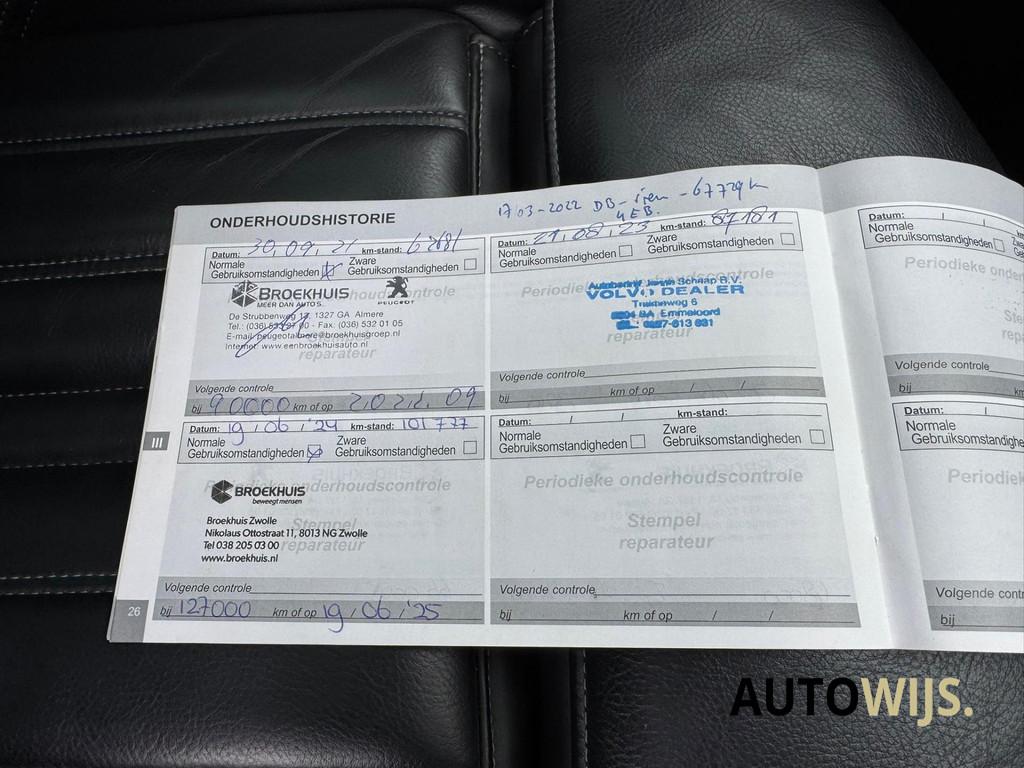 ONDERHOUDSHISTORIE
17 03-2022 DB-riem - 67729 k
4EB.
Datum: 30.09.21 km-stand:
Normale Gebruiksomstandigheden
Zware Gebruiksomstandigheden
BROEKHUIS
MEER DAN AUTO'S.
PEUGEOT
De Strubbenweg 17, 1327 GA Almere
Fax: (036) 532 01 05
E-mail: peugeotalmere@broekhuisgroep.nl
Internet: www.eenbroekhuisauto.nl
reparateur
Volgende controle
bij 90000 km of op 2022.09
Datum: 21/08/23 km-stand: 87181
Normale Gebruiksomstandigheden
Zware Gebruiksomstandigheden
Periodieke onderhoudscontrole
Autobedrijf Schaap B.V.
VOLVO DEALER
6
Emmeloord
reparateur
Volgende controle
bij km of op / /
III
Datum: 19/06/'24 km-stand: 101 777
Normale Gebruiksomstandigheden
Zware Gebruiksomstandigheden
Periodieke onderhoudscontrole
BROEKHUIS
beweegt mensen
Stempel
reparateur
Broekhuis Zwolle
Nikolaus Ottostraat 11, 8013 NG Zwolle
Tel 038 205 03 00
www.broekhuis.nl
Volgende controle
bij 127000 km of op 19/06/'25
26
Datum: / / km-stand:
Normale Gebruiksomstandigheden
Zware Gebruiksomstandigheden
Periodieke onderhoudscontrole
Stempel
reparateur
Volgende controle
bij km of op / /
Datum: / /
Normale
Gebruiksomstandigheden
Periodieke onder
Ste
rep
Volgende controle
bij
Datum: /
Normale
Gebruiksomstandighe
Periodiek
Volgende contr
bij
AUTOWIJS.